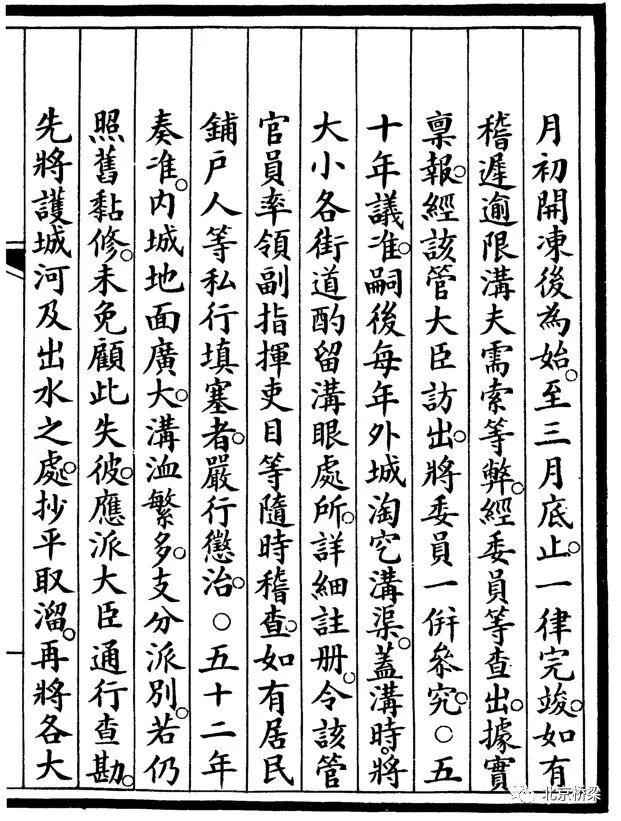 月初開凍後為始。至三月底止。一律完竣。如有
稽遲逾限溝夫需索等弊。經委員等查出。據實
稟報。經該管大臣訪出。將委員一併參究。○五
十年議准。嗣後每年外城淘空溝渠。蓋溝時。將
大小各街道酌留溝眼處所。詳細註册。令該管
官員率領副指揮吏目等隨時稽查。如有居民
鋪戸人等私行填塞者。嚴行懲治。○五十二年
奏准。内城地面廣大。溝洫繁多。支分派別。若仍
照舊黏修。未免顧此失彼。應派大臣通行查勘。
先將護城河及出水之處。抄平取溜。再將各大
北京桥梁